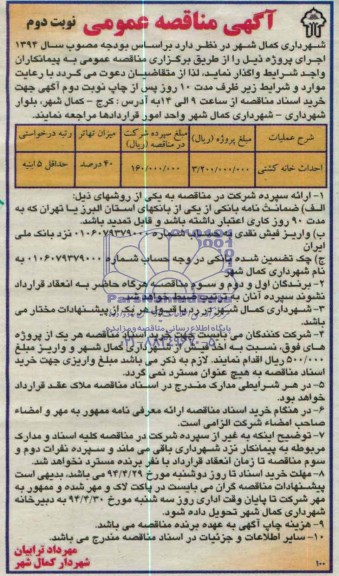 آگهی مناقصه عمومی نوبت دوم
شهرداری کمال شهر در نظر دارد براساس بودجه مصوب سال ۱۳۹۴
اجرای پروژه ذیل را از طریق برگزاری مناقصه عمومی به پیمانکاران
واجد شرایط واگذار نماید، لذا از متقاضیان دعوت می گردد با رعایت
موارد و شرایط زیر ظرف مدت ۱۰ روز پس از چاپ نوبت دوم آگهی جهت
خرید اسناد مناقصه از ساعت ۹ الی ۱۲ به آدرس : کرج - کمال شهر، بلوار
شهرداری - شهرداری کمال شهر واحد امور قراردادها مراجعه نمایند.
شرح عملیات مبلغ پروژه (ریال) مبلغ سپرده شرکت در مناقصه (ریال) میزان تهاتر رتبه درخواستی
احداث خانه کشتی ۳/۲۰۰/۰۰۰/۰۰۰ ۱۶۰/۰۰۰/۰۰۰ ۴۰ درصد حداقل ۵ ابنیه
۱- ارائه سپرده شرکت در مناقصه به یکی از روشهای ذیل:
الف) ضمانت نامه بانکی از یکی از بانکهای استان البرز یا تهران که به
مدت ۹۰ روز کاری اعتبار داشته باشد و قابل تمدید باشد.
ب) واریز فیش نقدی به حساب شماره ۰۱۰۶۰۷۹۳۷۹۰۰۰ نزد بانک ملی
ایران
ج) چک تضمین شده بانکی در وجه حساب شماره ۰۱۰۶۰۷۹۳۷۹۰۰۰ به
نام شهرداری کمال شهر
۲- برندگان اول و دوم و سوم مناقصه هرگاه حاضر به انعقاد قرارداد
نشوند سپرده آنان به ترتیب ضبط خواهد شد.
۳- شهرداری کمال شهر در رد یا قبول هر یک از پیشنهادات مختار می
باشد.
۴- شرکت کنندگان می بایست جهت خرید اسناد مناقصه هر یک از پروژه
های فوق، نسبت به اخذ فیش از شهرداری کمال شهر و واریز مبلغ
۵۰۰/۰۰۰ ریال اقدام نمایند. لازم به ذکر می باشد مبلغ واریزی جهت خرید
اسناد مناقصه به هیچ عنوان مسترد نمی گردد.
۵- در هر شرایطی مدارک مندرج در اسناد مناقصه ملاک عقد قرارداد
خواهد بود.
۶- در هنگام خرید اسناد مناقصه ارائه معرفی نامه ممهور به مهر و امضاء
صاحب امضاء شرکت الزامی است.
۷- توضیح اینکه به غیر از سپرده شرکت در مناقصه کلیه اسناد و مدارک
مربوطه به پیمانکار نزد شهرداری باقی می ماند و سپرده نفرات دوم و
سوم مناقصه تا زمان انعقاد قرارداد با نفر برنده مسترد نخواهد شد.
۸- مهلت خرید اسناد تا روز دوشنبه مورخ ۹۴/۴/۲۹ می باشد، بدیهی است
پیشنهادات مناقصه گران می بایست در پاکت لاک و مهر شده و ممهور به
مهر شرکت تا پایان وقت اداری روز سه شنبه مورخ ۹۴/۴/۳۰ به دبیرخانه
شهرداری کمال شهر تحویل داده شود.
۹- هزینه چاپ آگهی به عهده برنده مناقصه می باشد.
۱۰- سایر اطلاعات و جزئیات در اسناد مناقصه مندرج می باشد.
مهرداد ترابیان
شهردار کمال شهر
۱۰۰
پایگاه اطلاع رسانی مناقصه و مزایده